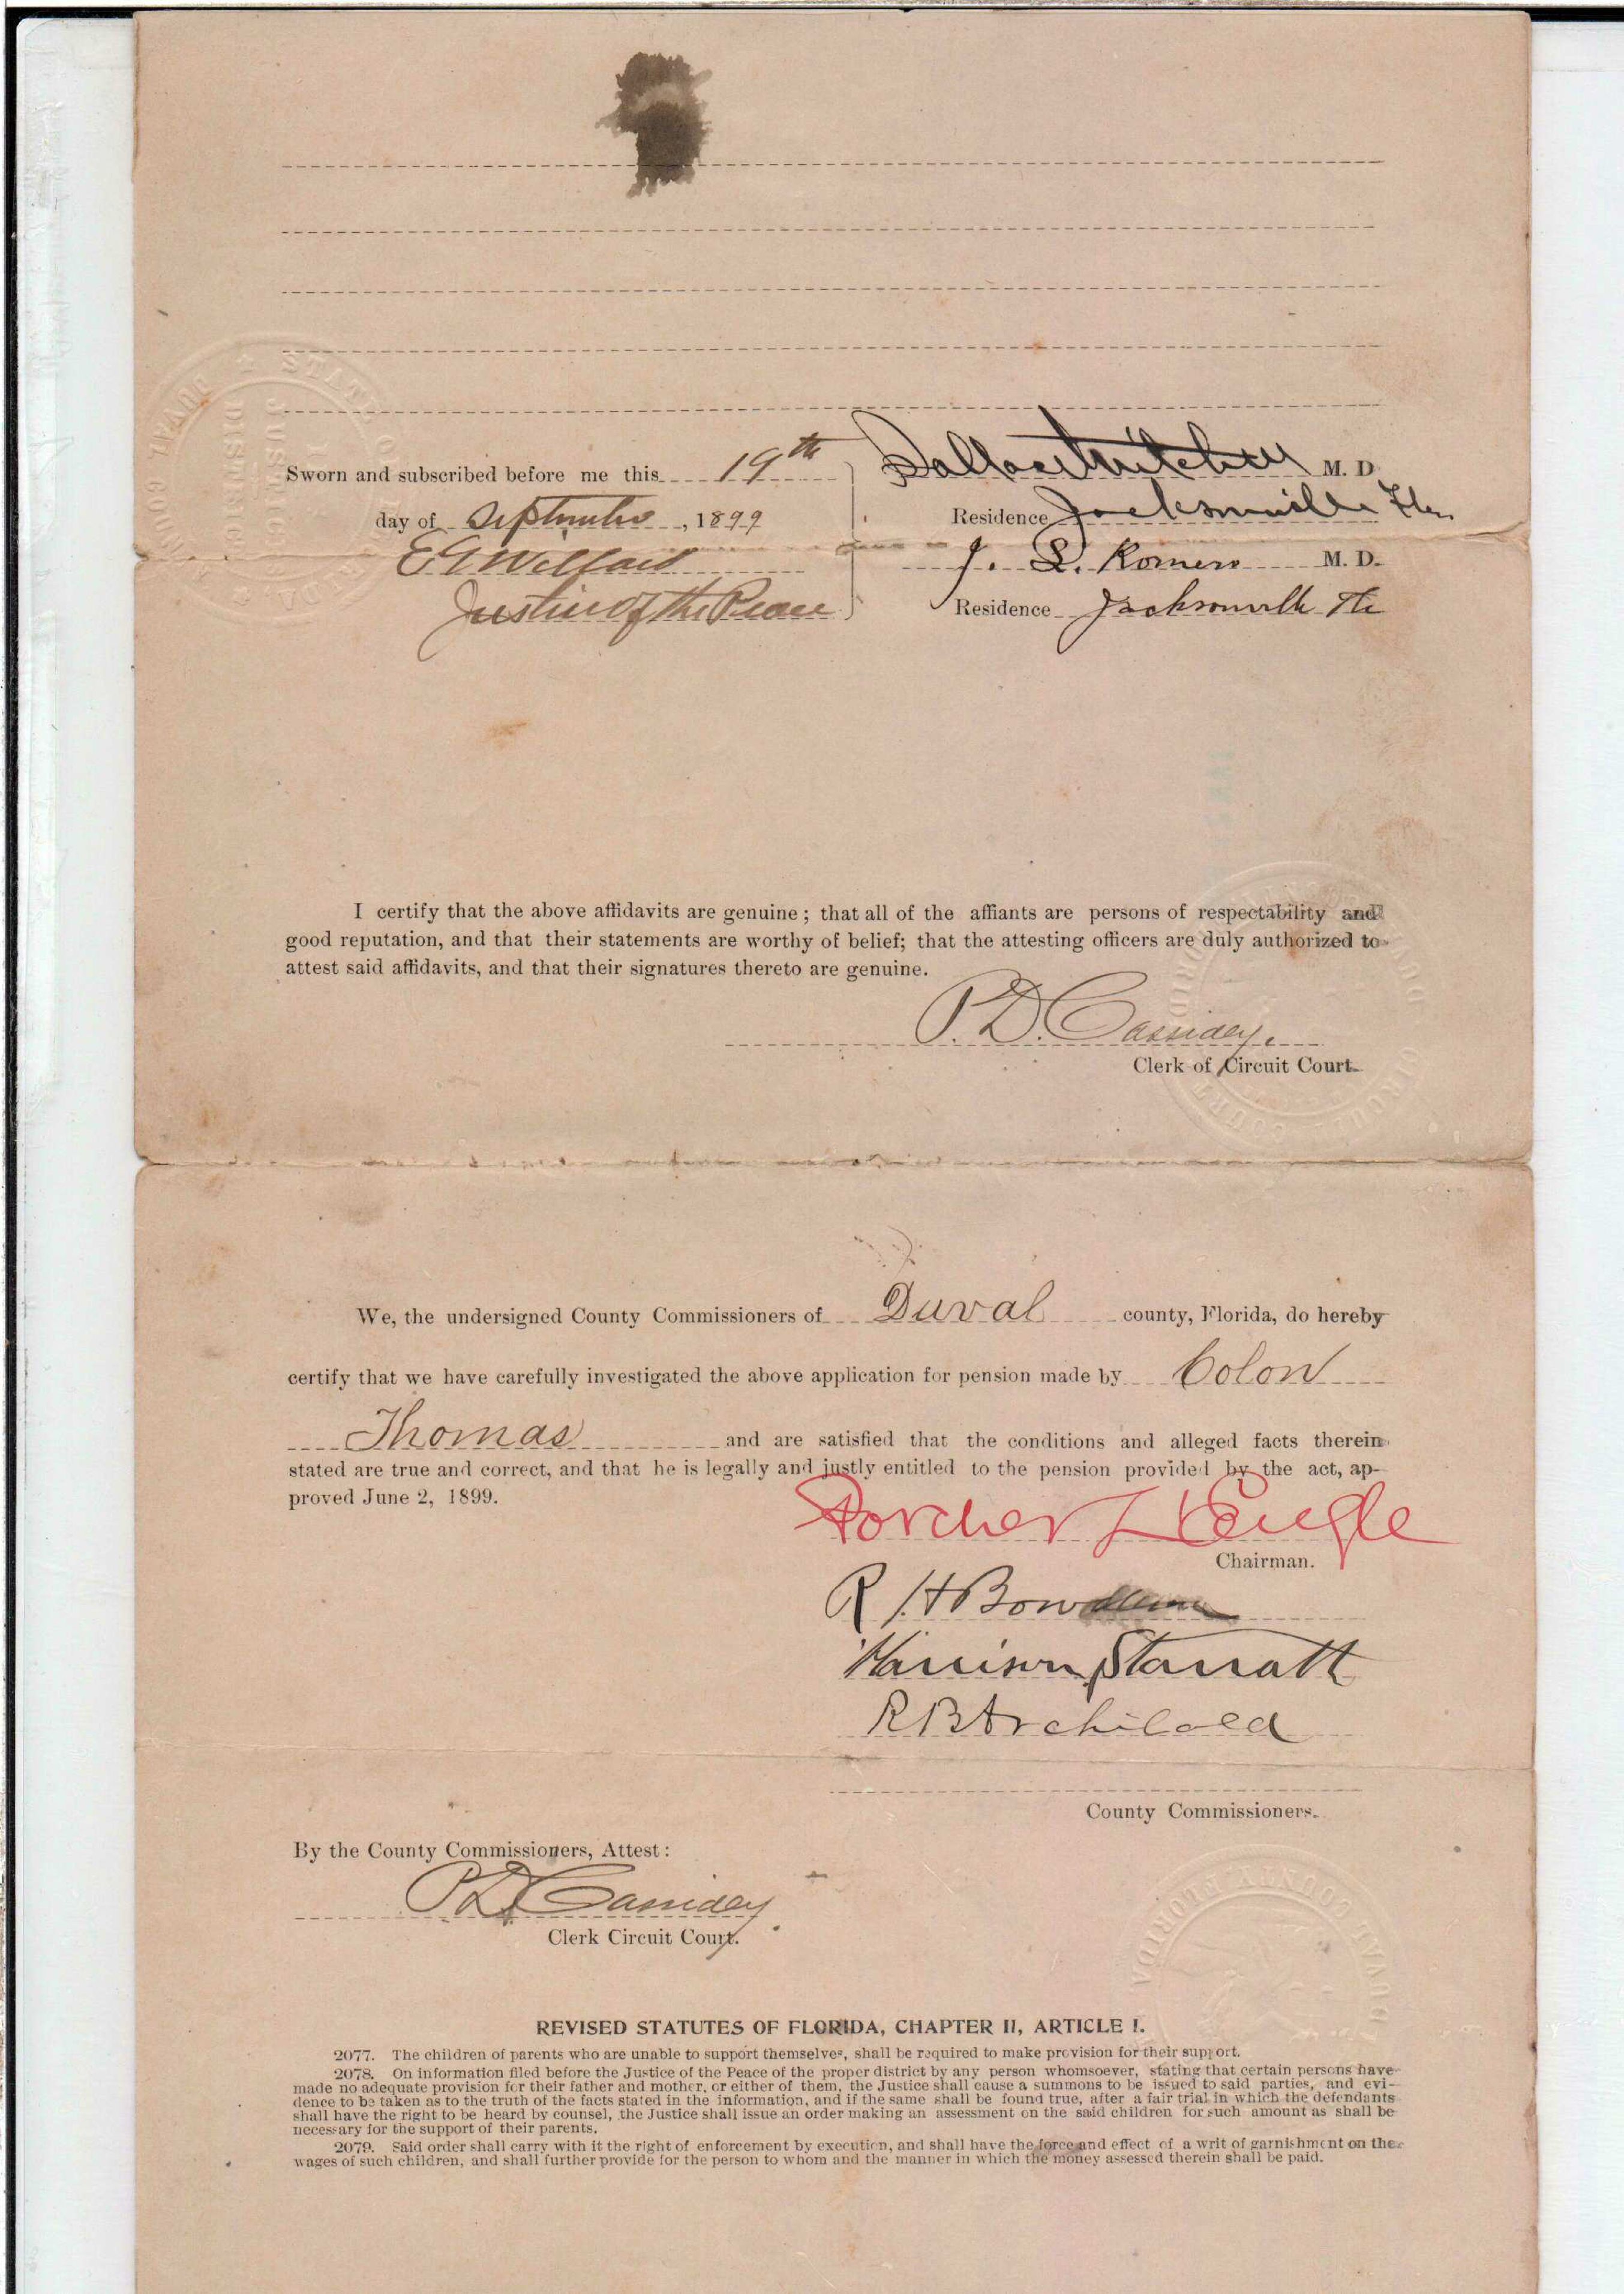 Sworn and subscribed before me this 19th
day of September, 1899
Justice of the Peace
Dallas Mitchell M. D.
Residence Jacksonville Fla
J. L. Romero M. D.
Residence Jacksonville Fla
I certify that the above affidavits are genuine; that all of the affiants are persons of respectability and
good reputation, and that their statements are worthy of belief; that the attesting officers are duly authorized to
attest said affidavits, and that their signatures thereto are genuine.
P. D. Cassidey,
Clerk of Circuit Court.
We, the undersigned County Commissioners of Duval county, Florida, do hereby
certify that we have carefully investigated the above application for pension made by Colon
Thomas and are satisfied that the conditions and alleged facts therein
stated are true and correct, and that he is legally and justly entitled to the pension provided by the act, ap-
proved June 2, 1899.
Porcher L'Engle
Chairman.
R H Bowden
Harrison Starratt
R B Archibald
County Commissioners.
By the County Commissioners, Attest:
P D Cassidey
Clerk Circuit Court.
DUVAL COUNTY FLORIDA
REVISED STATUTES OF FLORIDA, CHAPTER II, ARTICLE I.
2077. The children of parents who are unable to support themselves, shall be required to make provision for their support.
2078. On information filed before the Justice of the Peace of the proper district by any person whomsoever, stating that certain persons have
made no adequate provision for their father and mother, or either of them, the Justice shall cause a summons to be issued to said parties, and evi-
dence to be taken as to the truth of the facts stated in the information, and if the same shall be found true, after a fair trial in which the defendants
shall have the right to be heard by counsel, the Justice shall issue an order making an assessment on the said children for such amount as shall be
necessary for the support of their parents.
2079. Said order shall carry with it the right of enforcement by execution, and shall have the force and effect of a writ of garnishment on the
wages of such children, and shall further provide for the person to whom and the manner in which the money assessed therein shall be paid.